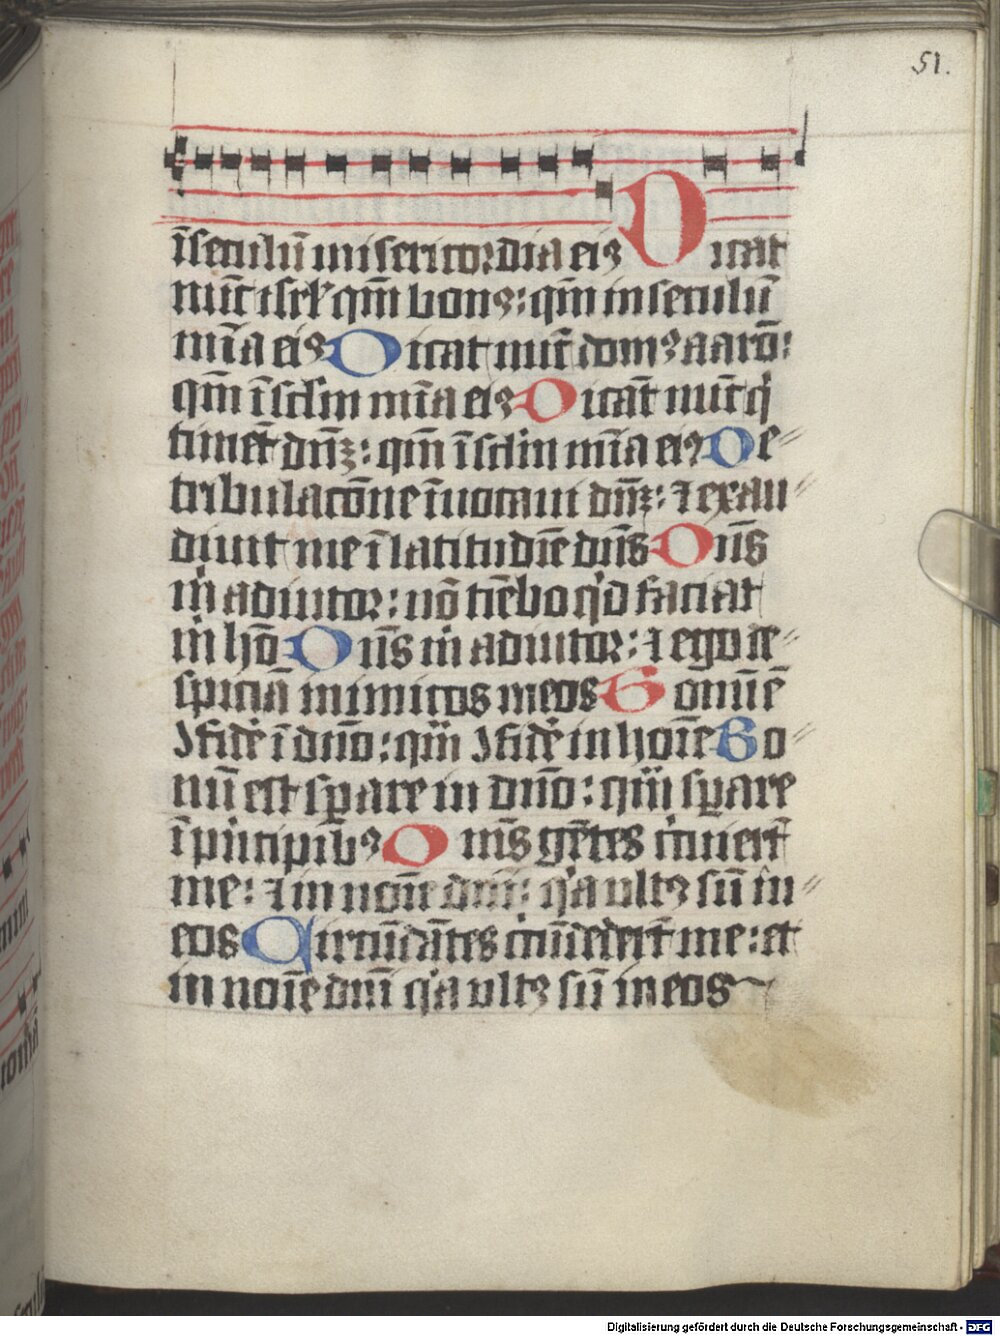 51.
ī seculū misericordia eiꝰ Dicat
nūc isrl̄ qm̄ bonꝰ: qm̄ in seculū
mīa eiꝰ Dicat nūc domꝰ aarō:
qm̄ ī sclm mīa eiꝰ Dicāt nūc q
timēt dn̄ꝫ: qm̄ ī sclm mīa eiꝰ De
tribulacōne īuocaui dn̄ꝫ: ⁊ exau
diuit me ī latitudīe dn̄s Dn̄s
m adiutor: nō timebo qd faciat
m hō Dn̄s m adiutor: ⁊ ego de
spiciā inimicos meos Bonū ē
ꝯfidē ī dn̄o: qm̄ ꝯfidē in hoīe Bo
nū est sꝑare in dn̄o: qm̄ sꝑare
ī pncipibꝰ Om̄s gētes
me: ⁊ in noīe dn̄i: qa vltꝰ sū in
eos Circūdātes me: et
in noīe dn̄i qa vltꝰ sū in eos
Digitalisierung gefördert durch die Deutsche Forschungsgemeinschaft - DFG